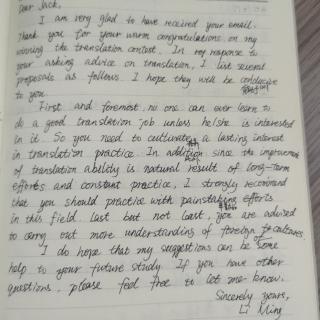 Dear Jack,
I am very glad to have received your email.
Thank you for your warm congratulations on my
winning the translation contest. In my response to
your asking advice on translation, I list several
proposals as follows. I hope they will be conducive
to you.
First and foremost, no one can ever learn to
do a good translation job unless he/she is interested
in it. So you need to cultivate a lasting interest
in translation practice. In addition, since the improvement
of translation ability is natural result of long-term
efforts and constant practice, I strongly recommend
that you should practice with painstaking efforts
in this field. Last but not least, you are advised
to carry out more understandings of foreign cultures.
I do hope that my suggestions can be some
help to your future study. If you have other
questions, please feel free to let me know.
Sincerely yours,
Li Ming